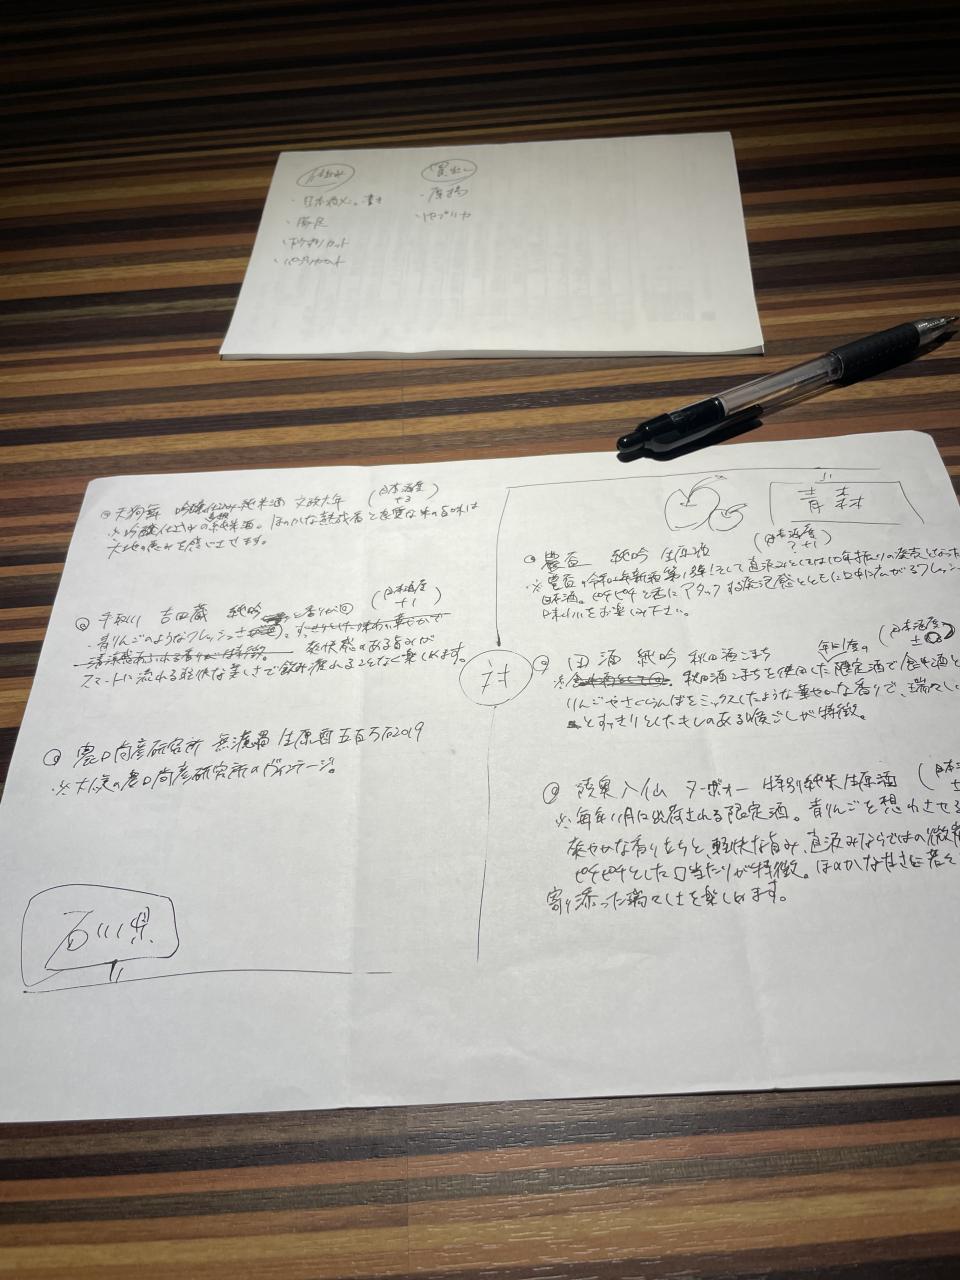 仕込み
・豚足
買出し
・パプリカ
◎天狗舞 吟醸仕込み純米酒 文政六年 (日本酒度 +3)
※吟醸仕込みの純米酒。ほのかな熟成香と良質な米の旨味は
大地の恵みを感じさせます。
◎手取川 吉田蔵 純吟 (日本酒度 +1)
・青りんごのようなフレッシュさ
爽快感のある旨みが
スマートに流れる軽快な美しさで飲み疲れることなく楽しめます。
◎農口尚彦研究所 無濾過 生原酒 五百万石2019
※大人気の農口尚彦研究所のヴィンテージ。
石川県
対
青森
◎豊盃 純吟 生原酒 (日本酒度 ?+1)
※豊盃の令和2年新酒第1弾!そして直汲みとしては10年振りの発売となった
日本酒。ピチピチと舌にアタックする発泡感とともに口中に広がるフレッシュ
味わいをお楽しみ下さい。
◎田酒 純吟 秋田酒こまち 年に1度の (日本酒度 ±0)
※秋田酒こまちを使用した限定酒で食中酒と
りんごやさくらんぼをミックスしたような華やかな香りで、瑞々しい
とすっきりとしたキレのある喉ごしが特徴。
◎陸奥八仙 ヌーヴォー 特別純米 生原酒 (日本酒
※毎年11月に出荷される限定酒。青りんごを想わせる
爽やかな香りをもち、軽快な旨み、直汲みならではの微発
ピチピチとした口当たりが特徴。ほのかな甘さに
寄り添った瑞々しさを楽しめます。